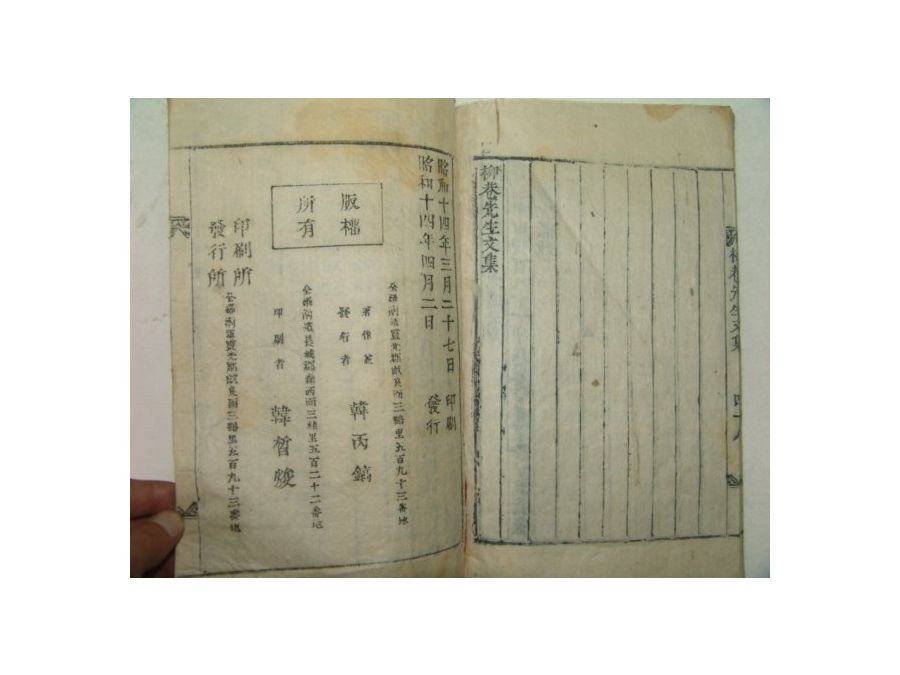 柳巷先生文集
昭和十四年三月二十七日 印刷
昭和十四年四月二日 發行
版權
所有
全羅南道靈光郡畝良面三鶴里五百九十三番地
著作兼
發行者
韓丙鎬
全羅南道長城郡森西面三
里五百二十二番地
印刷者
韓晳燮
印刷所
發行所
全羅南道靈光郡畝良面三鶴里五百九十三番地